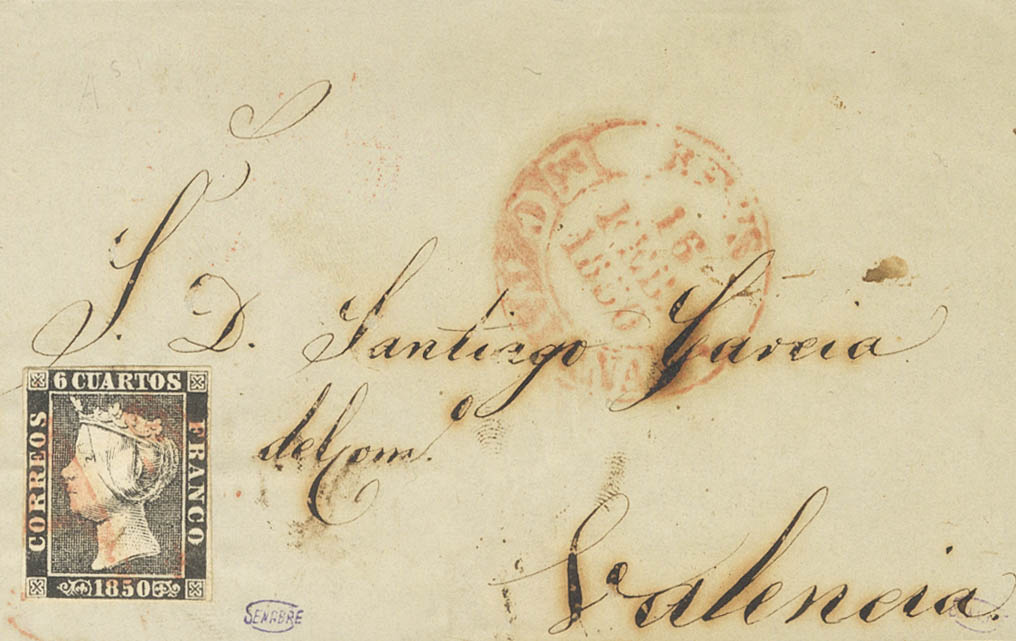 S. D. Santiago Garcia
del Com.º
Valencia.
6 CUARTOS
CORREOS
FRANCO
1850
16
1850
SENABRE